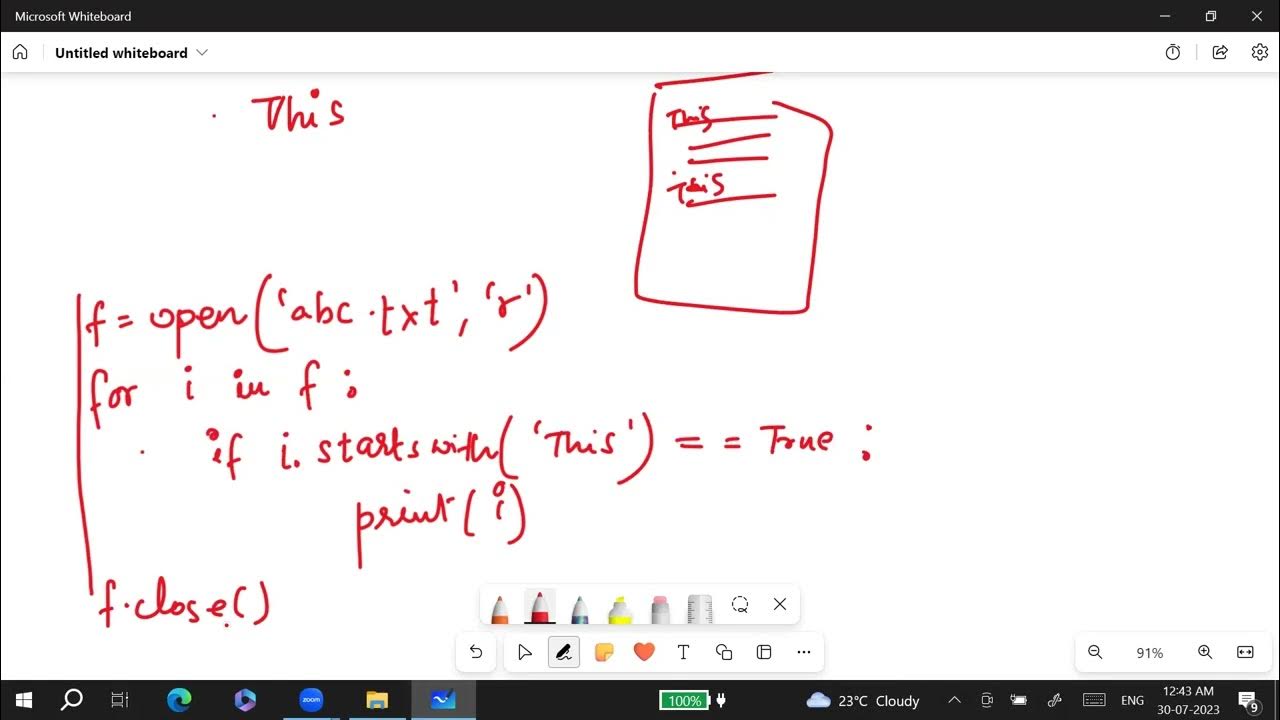 Microsoft Whiteboard
Untitled whiteboard
This
This
This
f = open('abc.txt', 'r')
for i in f :
if i.startswith('This') == True :
print(i)
f.close()
T
91%
zoom
100%
23°C Cloudy
ENG
12:43 AM
30-07-2023
9